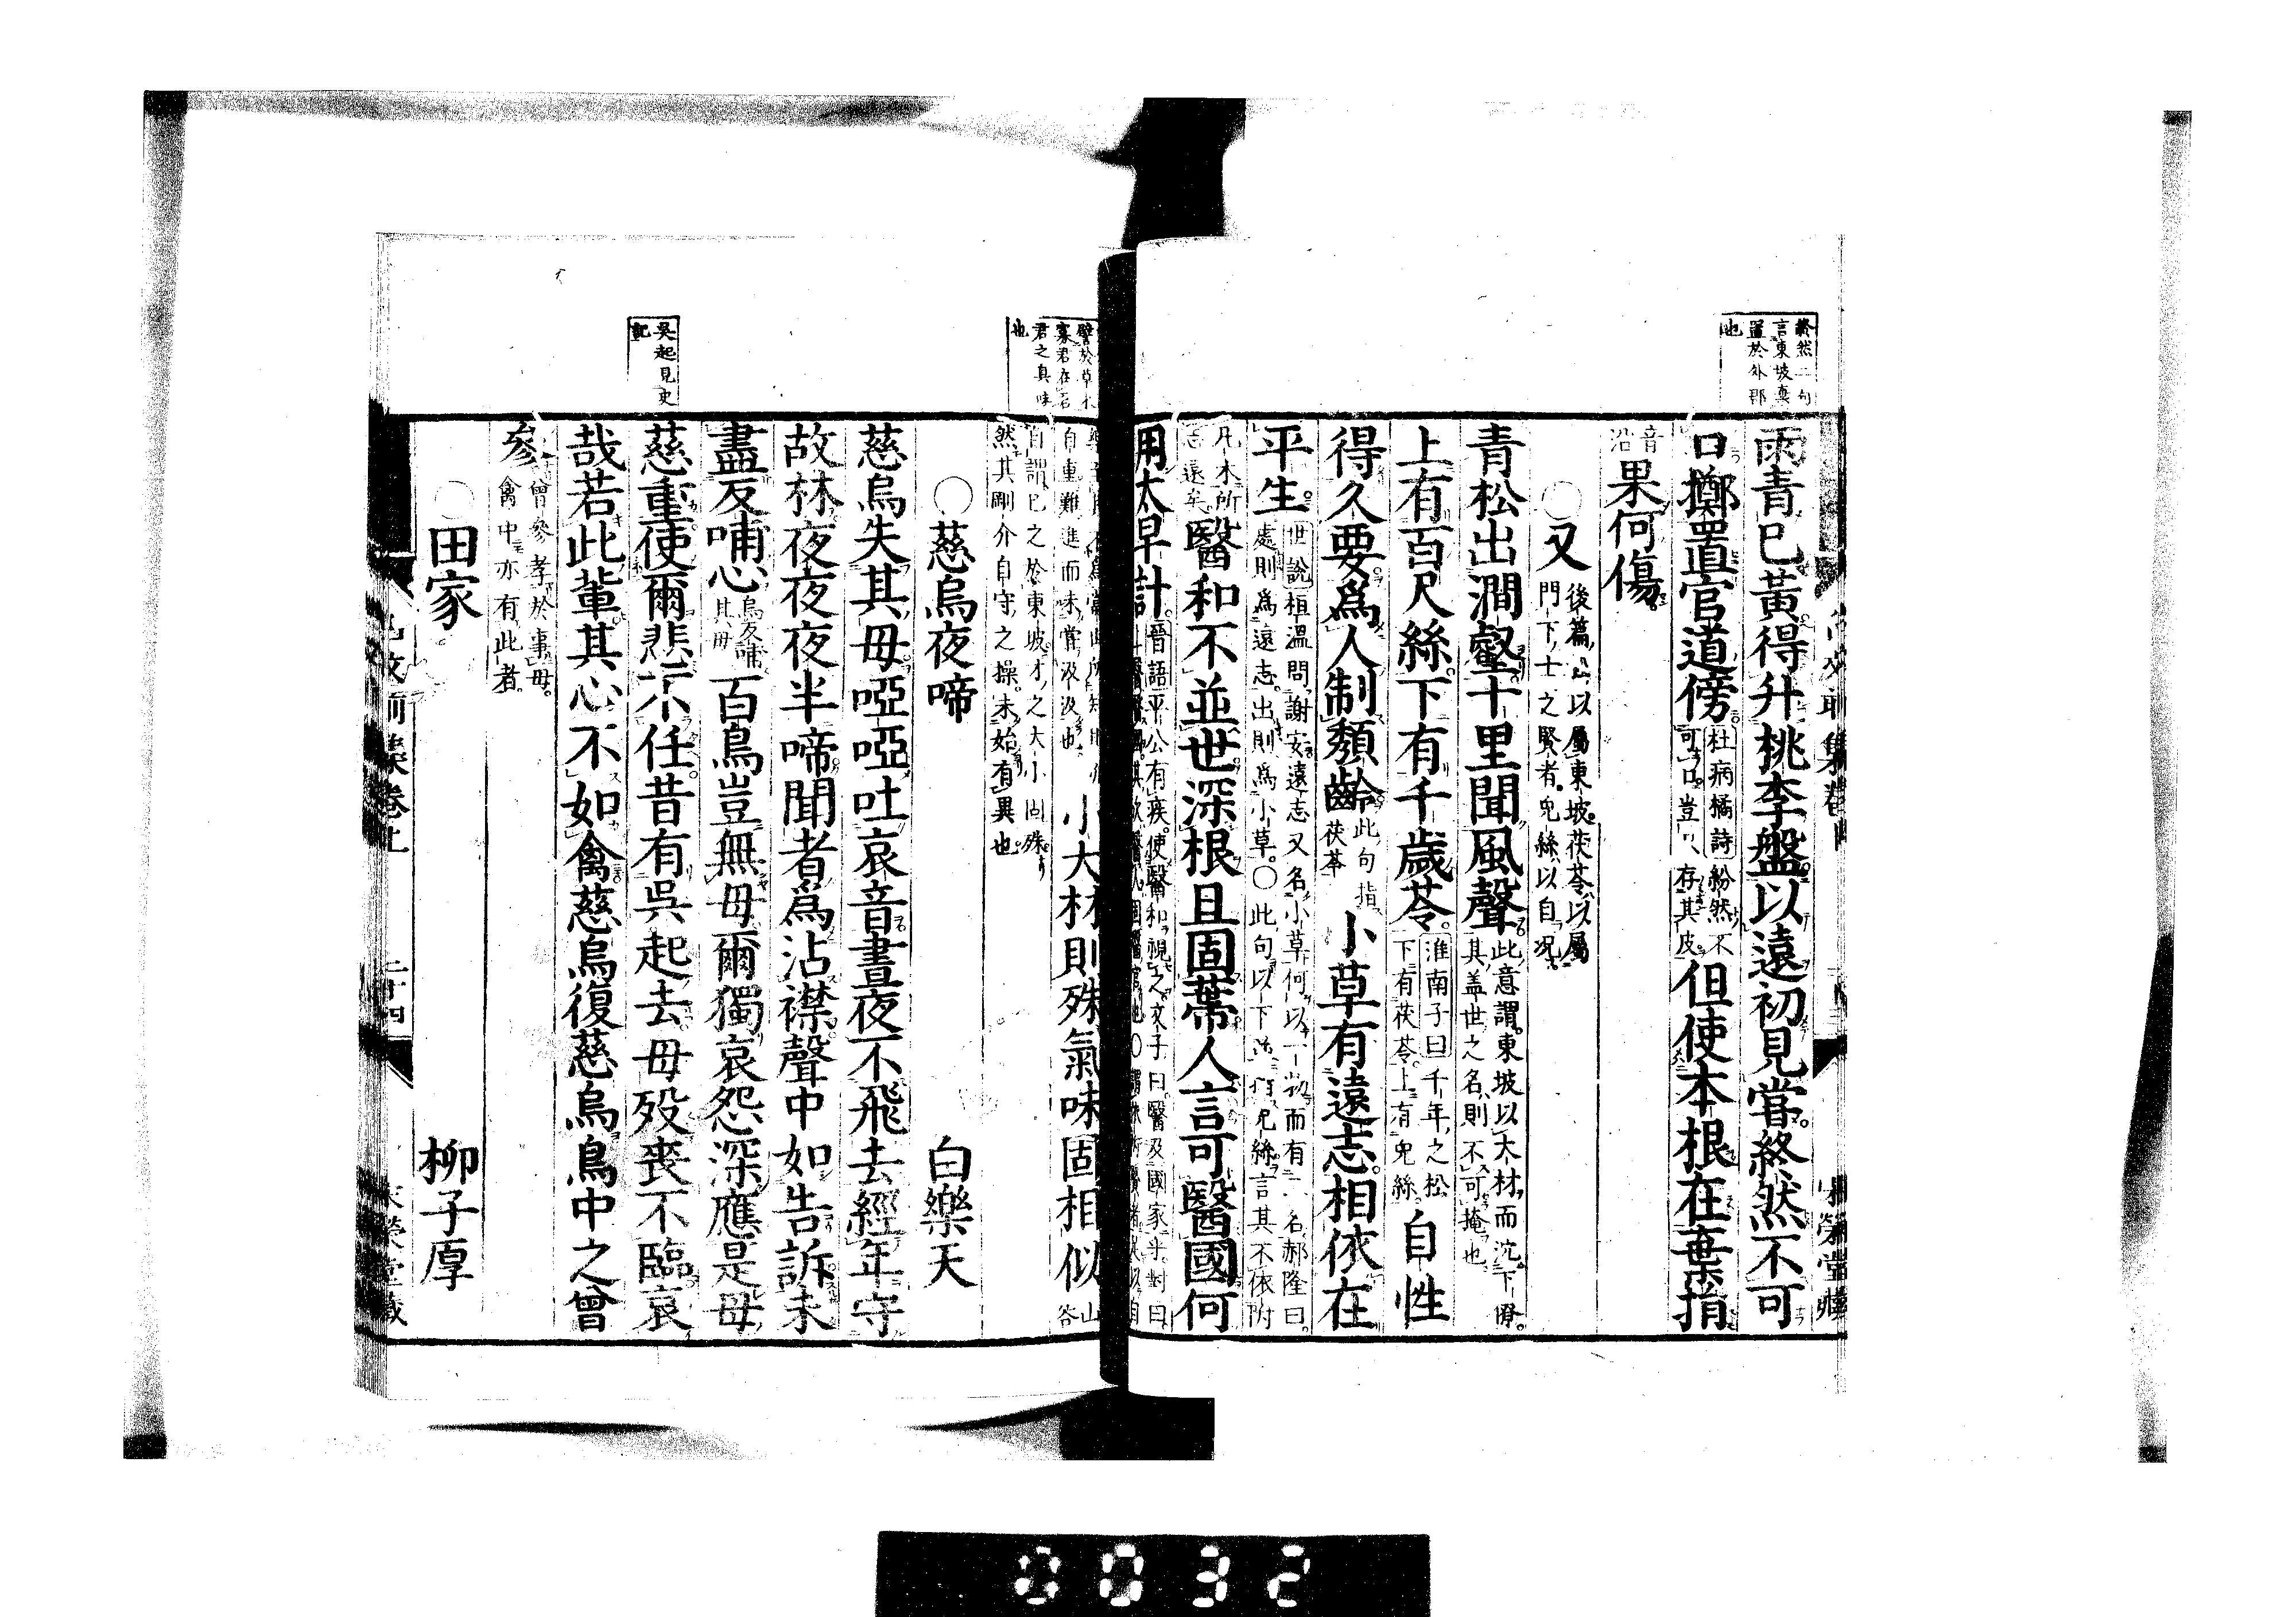 終然二句
言東坡棄
置於外郡
也
雨青已黃得升桃李盤以遠初見嘗終然不可
口擲置官道傍杜病橘詩紛然不可口豈以存其皮但使本根在棄捐
音沿果何傷
○又後篇以屬東坡茯苓以屬門下士之賢者兔絲以自況
青松出澗壑十里聞風聲此意謂東坡以大材而沉下僚其盖世之名則不可掩也
上有百尺絲下有千歲苓淮南子曰千年之松下有茯苓上有兔絲自性
得久要爲人制頹齡此句指茯苓小草有遠志相依在
平生世說桓溫問謝安遠志又名小草何以一物而有二名郝隆曰處則爲遠志出則爲小草○此句以下兔絲言其不依附
凡木所志遠矣醫和不並世深根且固蒂人言可醫國何
用太早計晉語平公有疾使醫和視之文子曰醫及國家乎對曰
譬於草木
寡君在
君之臭味
也
小大材則殊氣味固相似山谷
自謂己之於東坡才之大小固殊
然其剛介自守之操未始有異也
○慈烏夜啼 白樂天
慈烏失其母啞啞吐哀音晝夜不飛去經年守
故林夜夜夜半啼聞者爲沾襟聲中如告訴未
盡反哺心烏反哺其母百鳥豈無母爾獨哀怨深應是母
吳起見史
記
慈重使爾悲不任昔有吳起去母歿喪不臨哀
哉若此輩其心不如禽慈烏復慈烏鳥中之曾
參曾參孝於事母禽中亦有此者
○田家 柳子厚
二十四